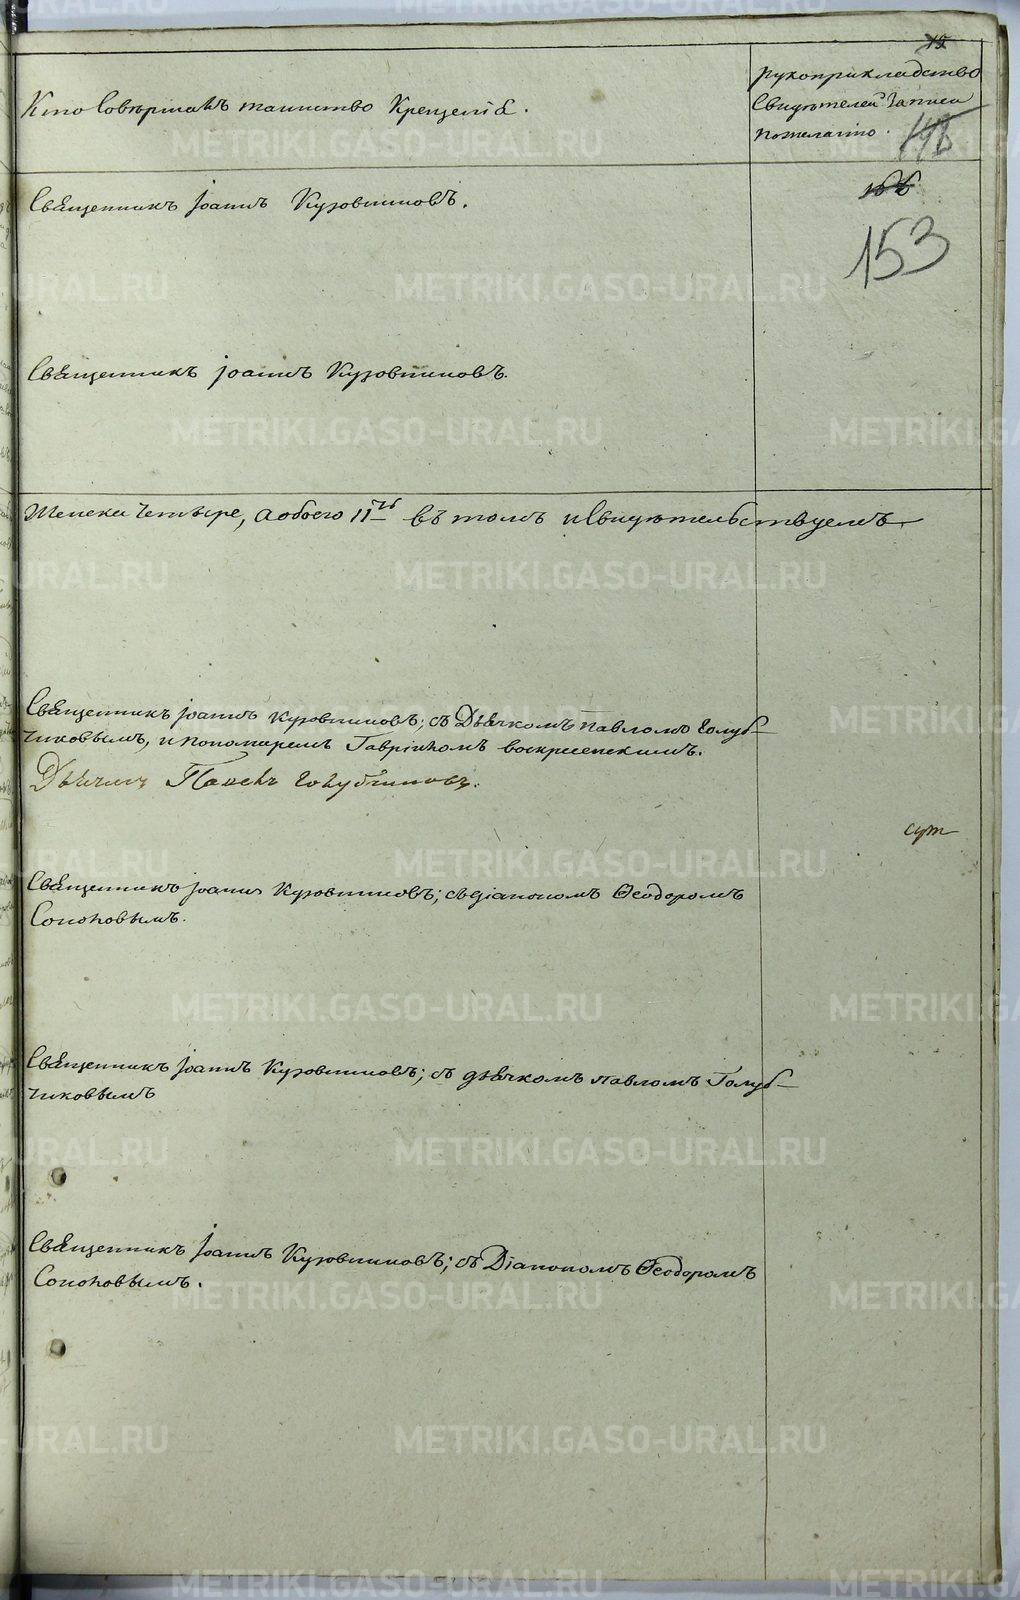 Кто Совершалъ таинство Крещенія.
рукоприкладство
Свидѣтелей Записи
по желанію.
153
Священникъ Іоаннъ Кузовниковъ.
Священникъ Іоаннъ Кузовниковъ.
Женска Четыре, а обоего 11ть въ томъ и Свидѣтельствуемъ
Священникъ Іоаннъ Кузовниковъ; съ Дьячкомъ Павломъ Голуб-
чиковымъ, и пономаремъ Гавріиломъ воскресенскимъ.
Дьячекъ Павелъ Голубчиковъ.
Священникъ Іоаннъ Кузовниковъ; съ діакономъ Ѳеодоромъ
Соколовымъ.
Священникъ Іоаннъ Кузовниковъ; съ дьячкомъ Павломъ Голуб-
чиковымъ
Священникъ Іоаннъ Кузовниковъ; съ Діакономъ Ѳеодоромъ
Соколовымъ.
METRIKI.GASO-URAL.RU